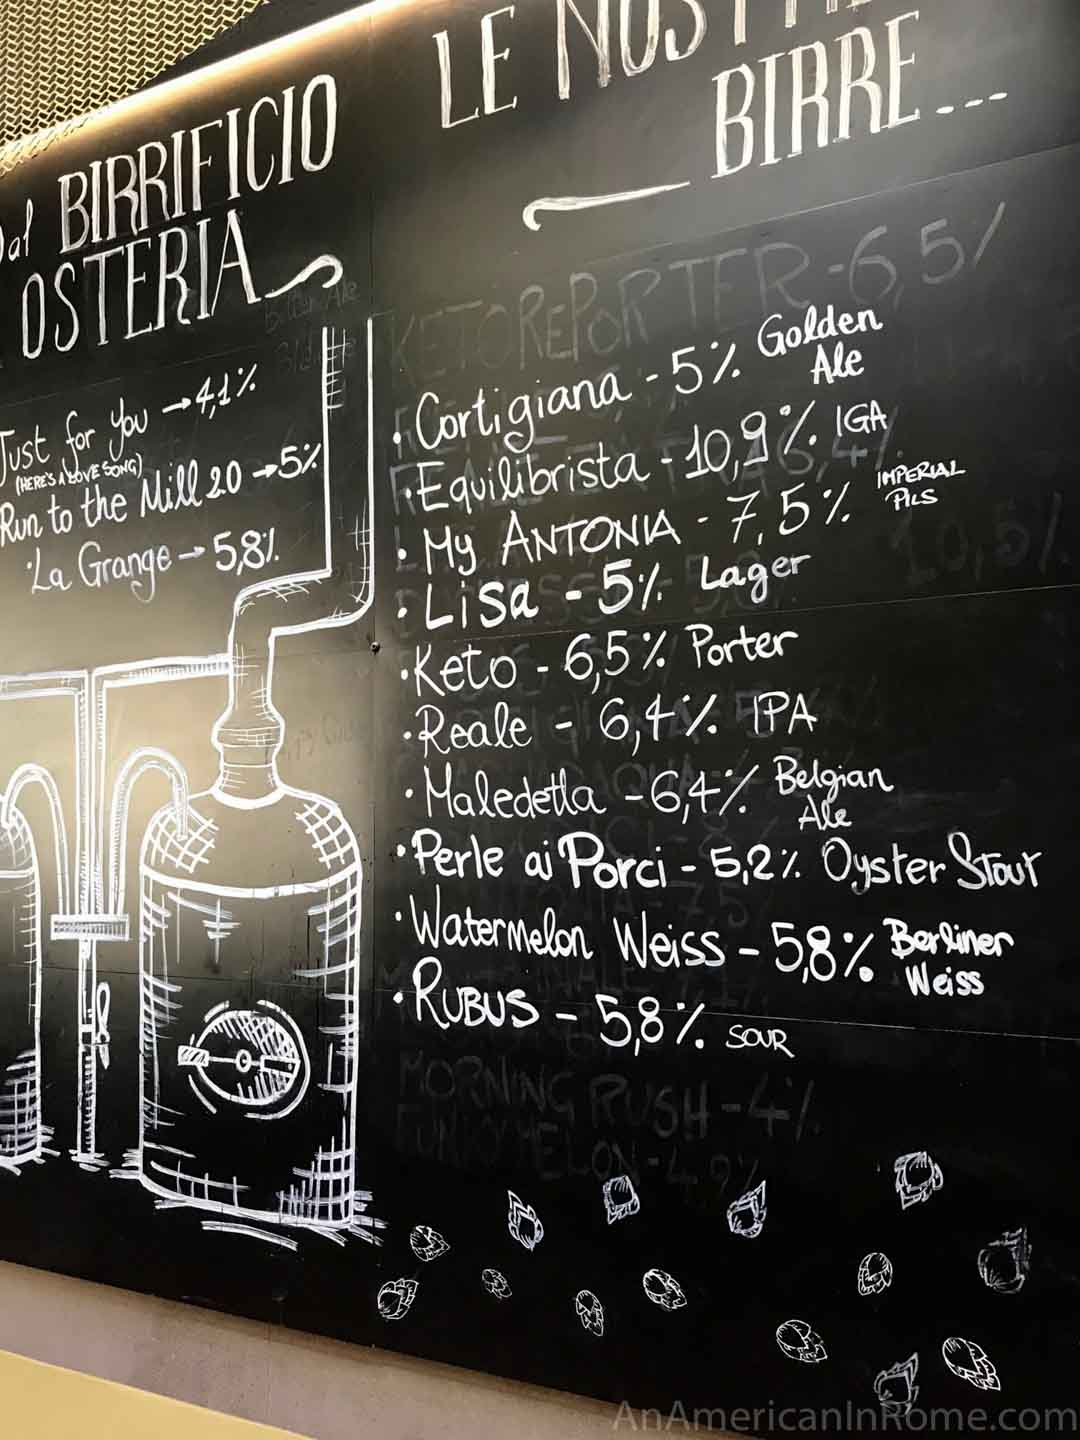 Dal BIRRIFICIO
OSTERIA
Just for You → 4,1%
(HERE'S A LOVE SONG)
Run to the Mill 2.0 → 5%
· La Grange → 5,8%
LE NOSTRE
BIRRE...
KETOREPORTER - 6,5%
· Cortigiana - 5% Golden Ale
· Equilibrista - 10,9% IGA
· My ANTONIA - 7,5% IMPERIAL PILS
· Lisa - 5% Lager
· Keto - 6,5% Porter
· Reale - 6,4% IPA
· Maledetta - 6,4% Belgian Ale
· Perle ai Porci - 5,2% Oyster Stout
· Watermelon Weiss - 5,8% Berliner Weiss
· RUBUS - 5,8% SOUR
MORNING RUSH - 4%
FUNKYMELON - 4,9%
AnAmericanInRome.com